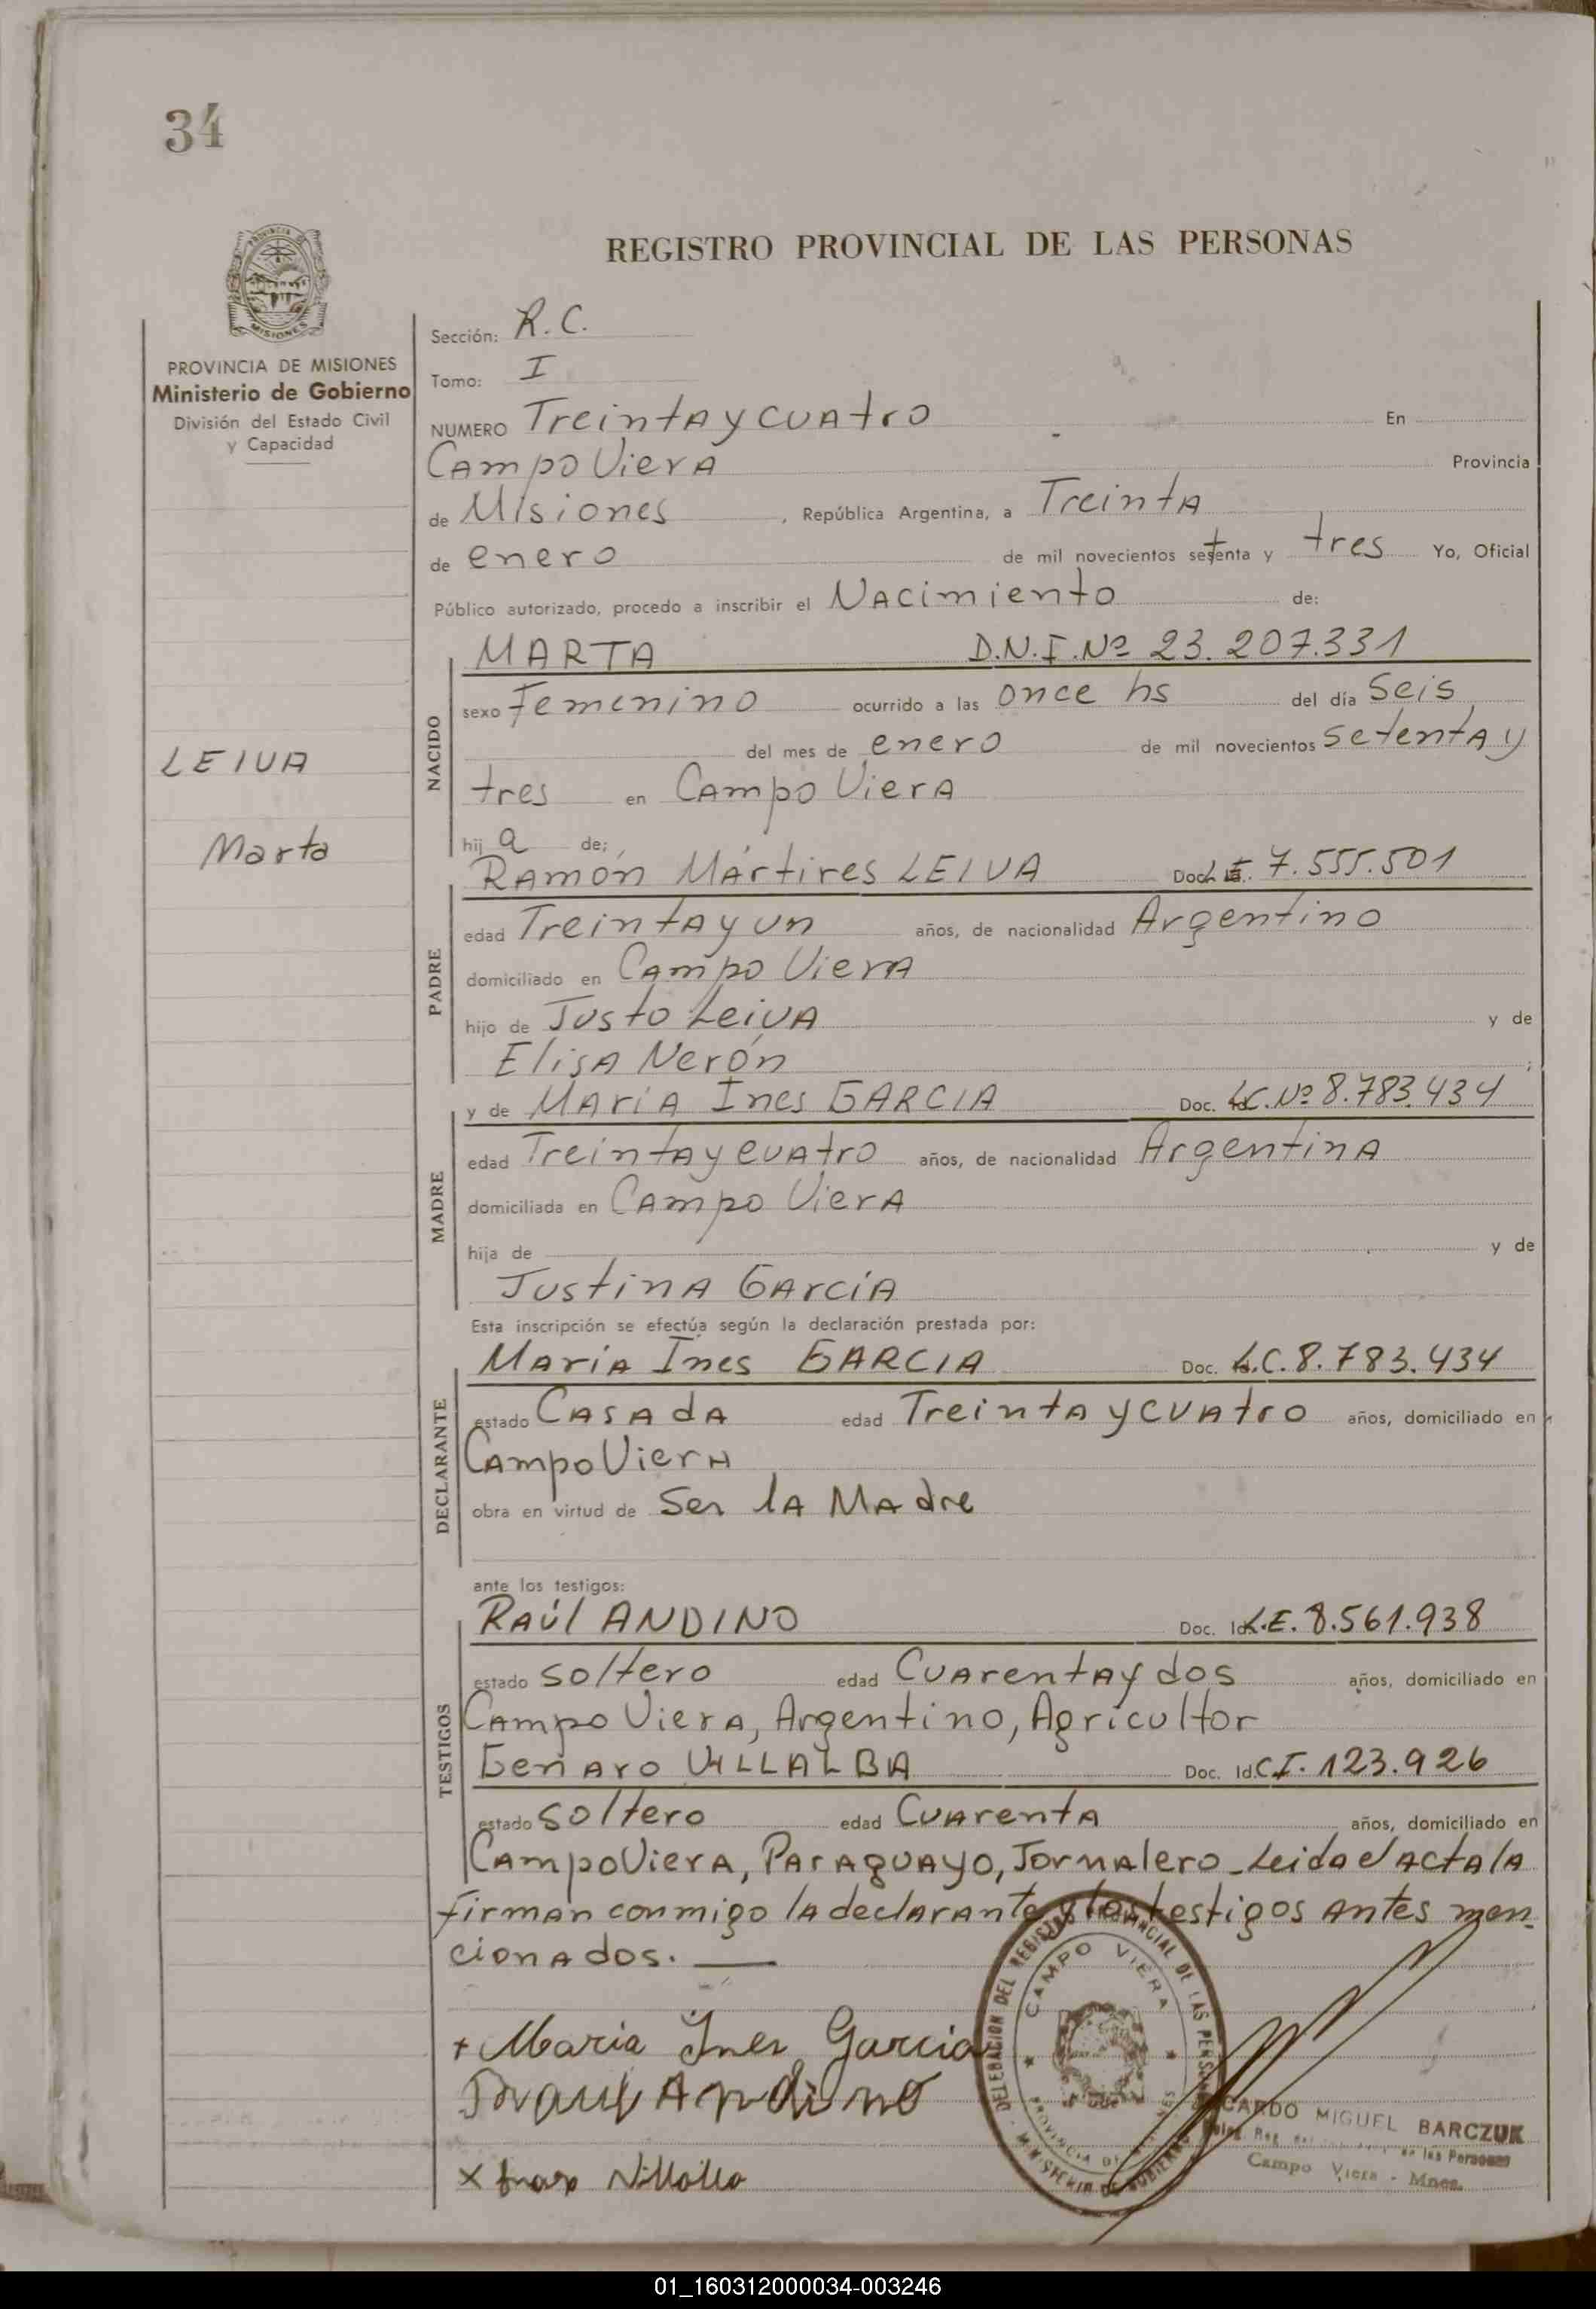 34
PROVINCIA
MISIONES
PROVINCIA DE MISIONES
Ministerio de Gobierno
División del Estado Civil
y Capacidad
LEIVA
Marta
REGISTRO PROVINCIAL DE LAS PERSONAS
Sección: R.C.
Tomo: I
NUMERO Treinta y cuatro En
Campo Viera Provincia
de Misiones , República Argentina, a Treinta
de enero de mil novecientos setenta y tres Yo, Oficial
Público autorizado, procedo a inscribir el Nacimiento de:
NACIDO
MARTA D.N.I. Nº 23.207.331
sexo Femenino ocurrido a las once hs del día seis
del mes de enero de mil novecientos setenta y
tres en Campo Viera
hija de;
PADRE
Ramón Mártires LEIVA Doc. 7.555.501
edad Treinta y un años, de nacionalidad Argentino
domiciliado en Campo Viera
hijo de Justo Leiva y de
Elisa Nerón ;
MADRE
y de María Ines GARCIA Doc. L.C. Nº 8.783.434
edad Treinta y cuatro años, de nacionalidad Argentina
domiciliada en Campo Viera
hija de y de
Justina García
Esta inscripción se efectúa según la declaración prestada por:
DECLARANTE
María Ines GARCIA Doc. L.C. 8.783.434
estado Casada edad Treinta y cuatro años, domiciliado en
Campo Viera
obra en virtud de Ser la Madre
ante los testigos:
TESTIGOS
Raúl ANDINO Doc. Id. L.E. 8.561.938
estado soltero edad Cuarenta y dos años, domiciliado en
Campo Viera, Argentino, Agricultor
Genaro VILLALBA Doc. Id. C.I. 123.926
estado soltero edad Cuarenta años, domiciliado en
Campo Viera, Paraguayo, Jornalero_Leida el acta la
firman conmigo la declarante y los testigos antes men
cionados.
+ Maria Ines Garcia
Raul Andino
DELEGACION DEL REGISTRO PROVINCIAL DE LAS PERSONAS
CAMPO VIERA
PROVINCIA DE MISIONES
MINISTERIO DE GOBIERNO
RICARDO MIGUEL BARCZUK
de las Personas
Campo Viera - Mnes.
01_160312000034-003246